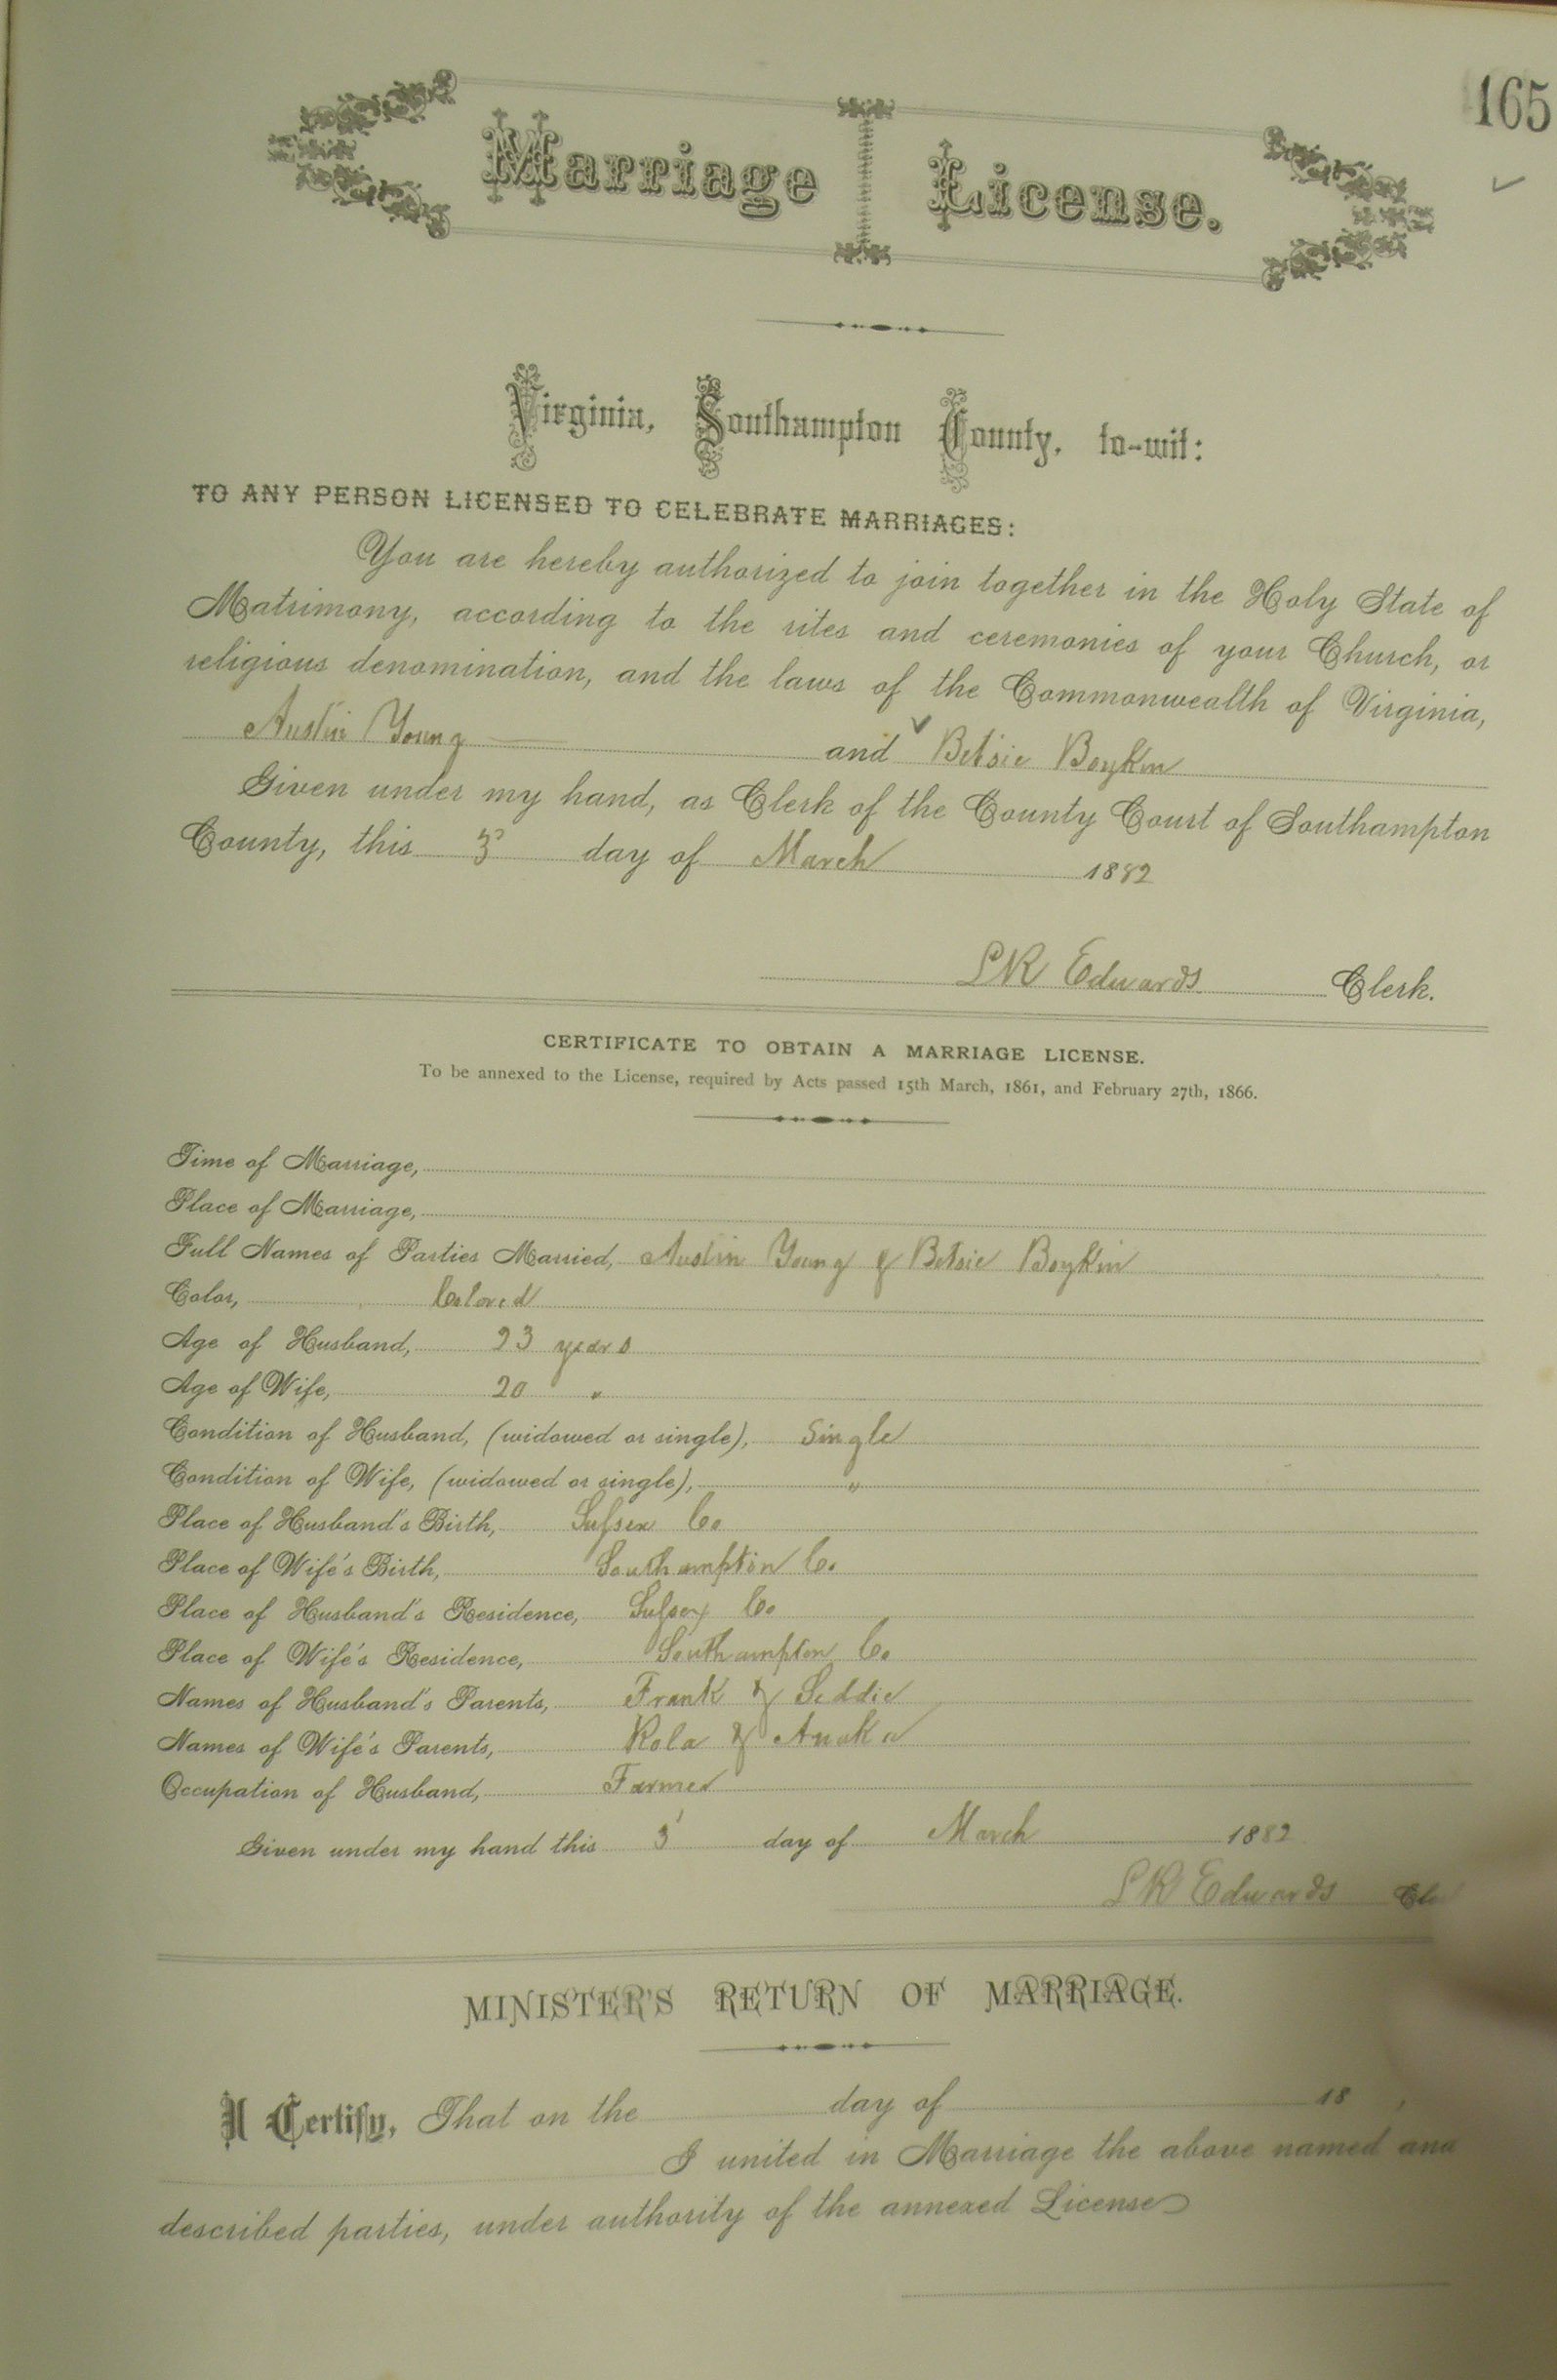 165
Marriage License.
Virginia, Southampton County, to-wit:
TO ANY PERSON LICENSED TO CELEBRATE MARRIAGES:
You are hereby authorized to join together in the Holy State of
Matrimony, according to the rites and ceremonies of your Church, or
religious denomination, and the laws of the Commonwealth of Virginia,
Austin Young and Betsie Boykin
Given under my hand, as Clerk of the County Court of Southampton
County, this 3 day of March 1882
LR Edwards Clerk.
CERTIFICATE TO OBTAIN A MARRIAGE LICENSE.
To be annexed to the License, required by Acts passed 15th March, 1861, and February 27th, 1866.
Time of Marriage,
Place of Marriage,
Full Names of Parties Married, Austin Young & Betsie Boykin
Color, Colored
Age of Husband, 23 years
Age of Wife, 20 "
Condition of Husband, (widowed or single), Single
Condition of Wife, (widowed or single), "
Place of Husband's Birth, Sussex Co
Place of Wife's Birth, Southampton Co.
Place of Husband's Residence, Sussex Co
Place of Wife's Residence, Southampton Co.
Names of Husband's Parents, Frank &
Names of Wife's Parents, &
Occupation of Husband, Farmer
Given under my hand this 3 day of March 1882
LR Edwards
MINISTER'S RETURN OF MARRIAGE.
I Certify, That on the day of 18 ,
I united in Marriage the above named and
described parties, under authority of the annexed License